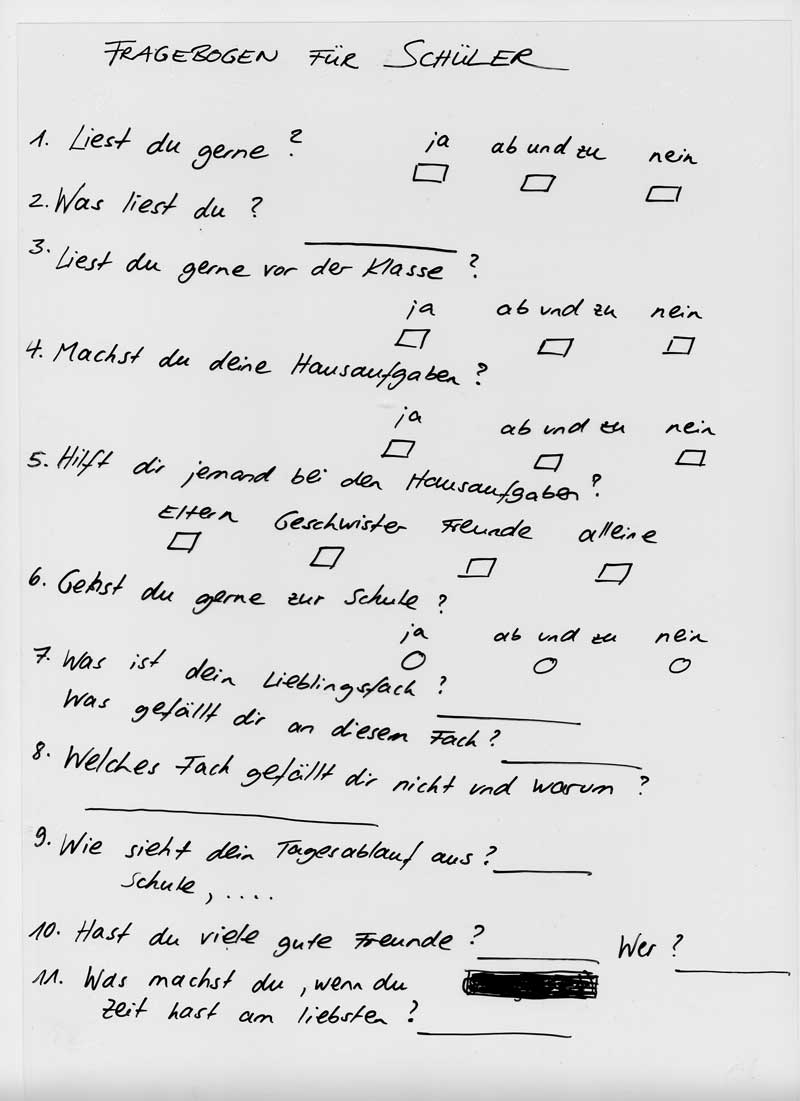 FRAGEBOGEN FÜR SCHÜLER
1. Liest du gerne? ja ab und zu nein
2. Was liest du?
3. Liest du gerne vor der Klasse?
ja ab und zu nein
4. Machst du deine Hausaufgaben?
ja ab und zu nein
5. Hilft dir jemand bei den Hausaufgaben?
Eltern Geschwister Freunde alleine
6. Gehst du gerne zur Schule?
ja ab und zu nein
7. Was ist dein Lieblingsfach?
Was gefällt dir an diesem Fach?
8. Welches Fach gefällt dir nicht und warum?
9. Wie sieht dein Tagesablauf aus?
Schule, ....
10. Hast du viele gute Freunde? Wer?
11. Was machst du, wenn du
Zeit hast am liebsten?